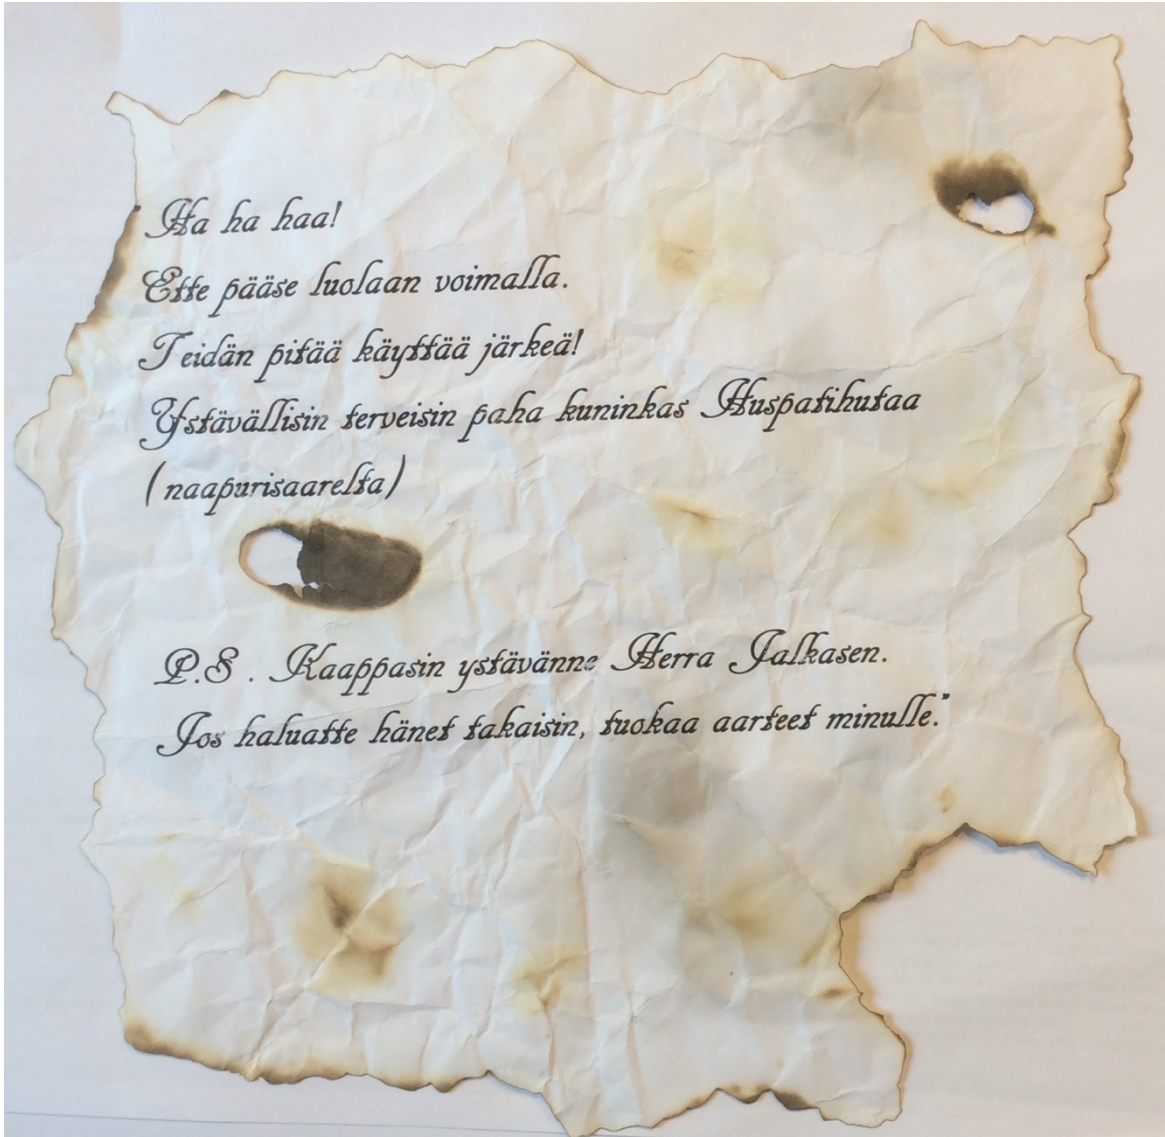 Ha ha haa!
Ette pääse luolaan voimalla.
Teidän pitää käyttää järkeä!
Ystävällisin terveisin paha kuninkas Huspatihutaa
(naapurisaarelta)
P.S. Kaappasin ystävänne Herra Jalkasen.
Jos haluatte hänet takaisin, tuokaa aarteet minulle."